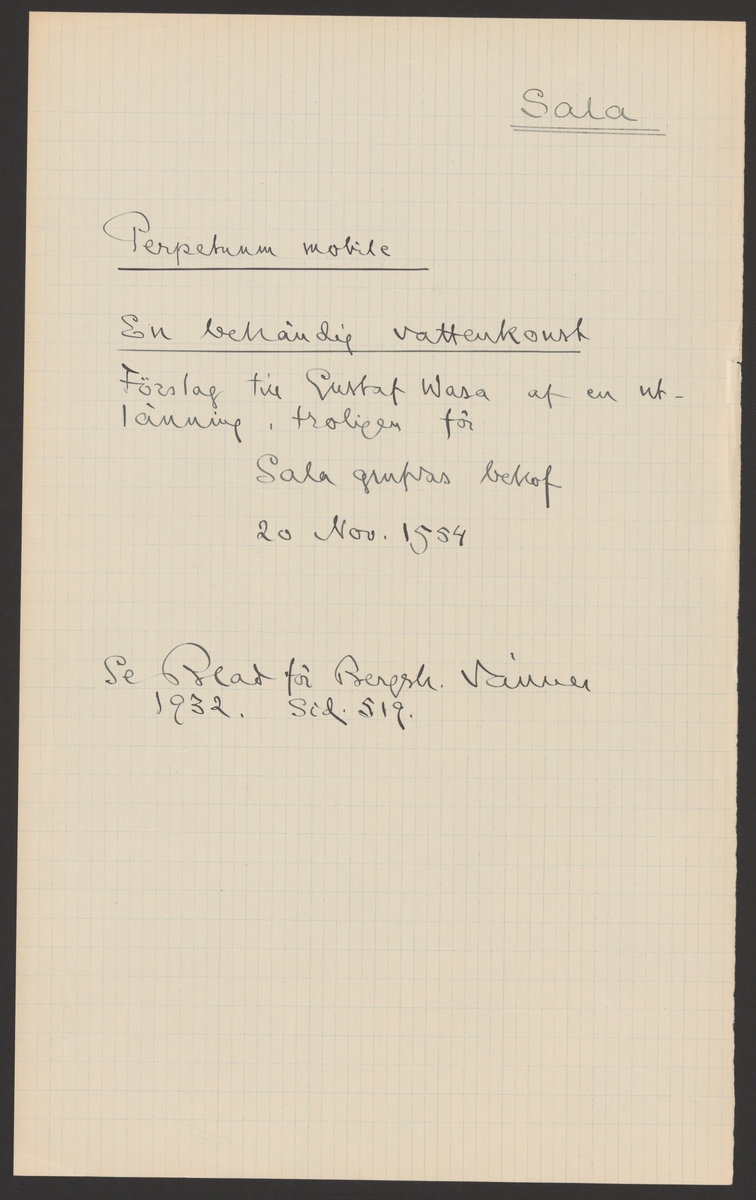 Sala
Perpetuum mobile
En behändig vattenkonst
Förslag till Gustaf Wasa af en ut-
länning, troligen för
Sala grufvas behof
20 Nov. 1554
Se Blad för Bergsh. Vänner
1932. Sid. 519.